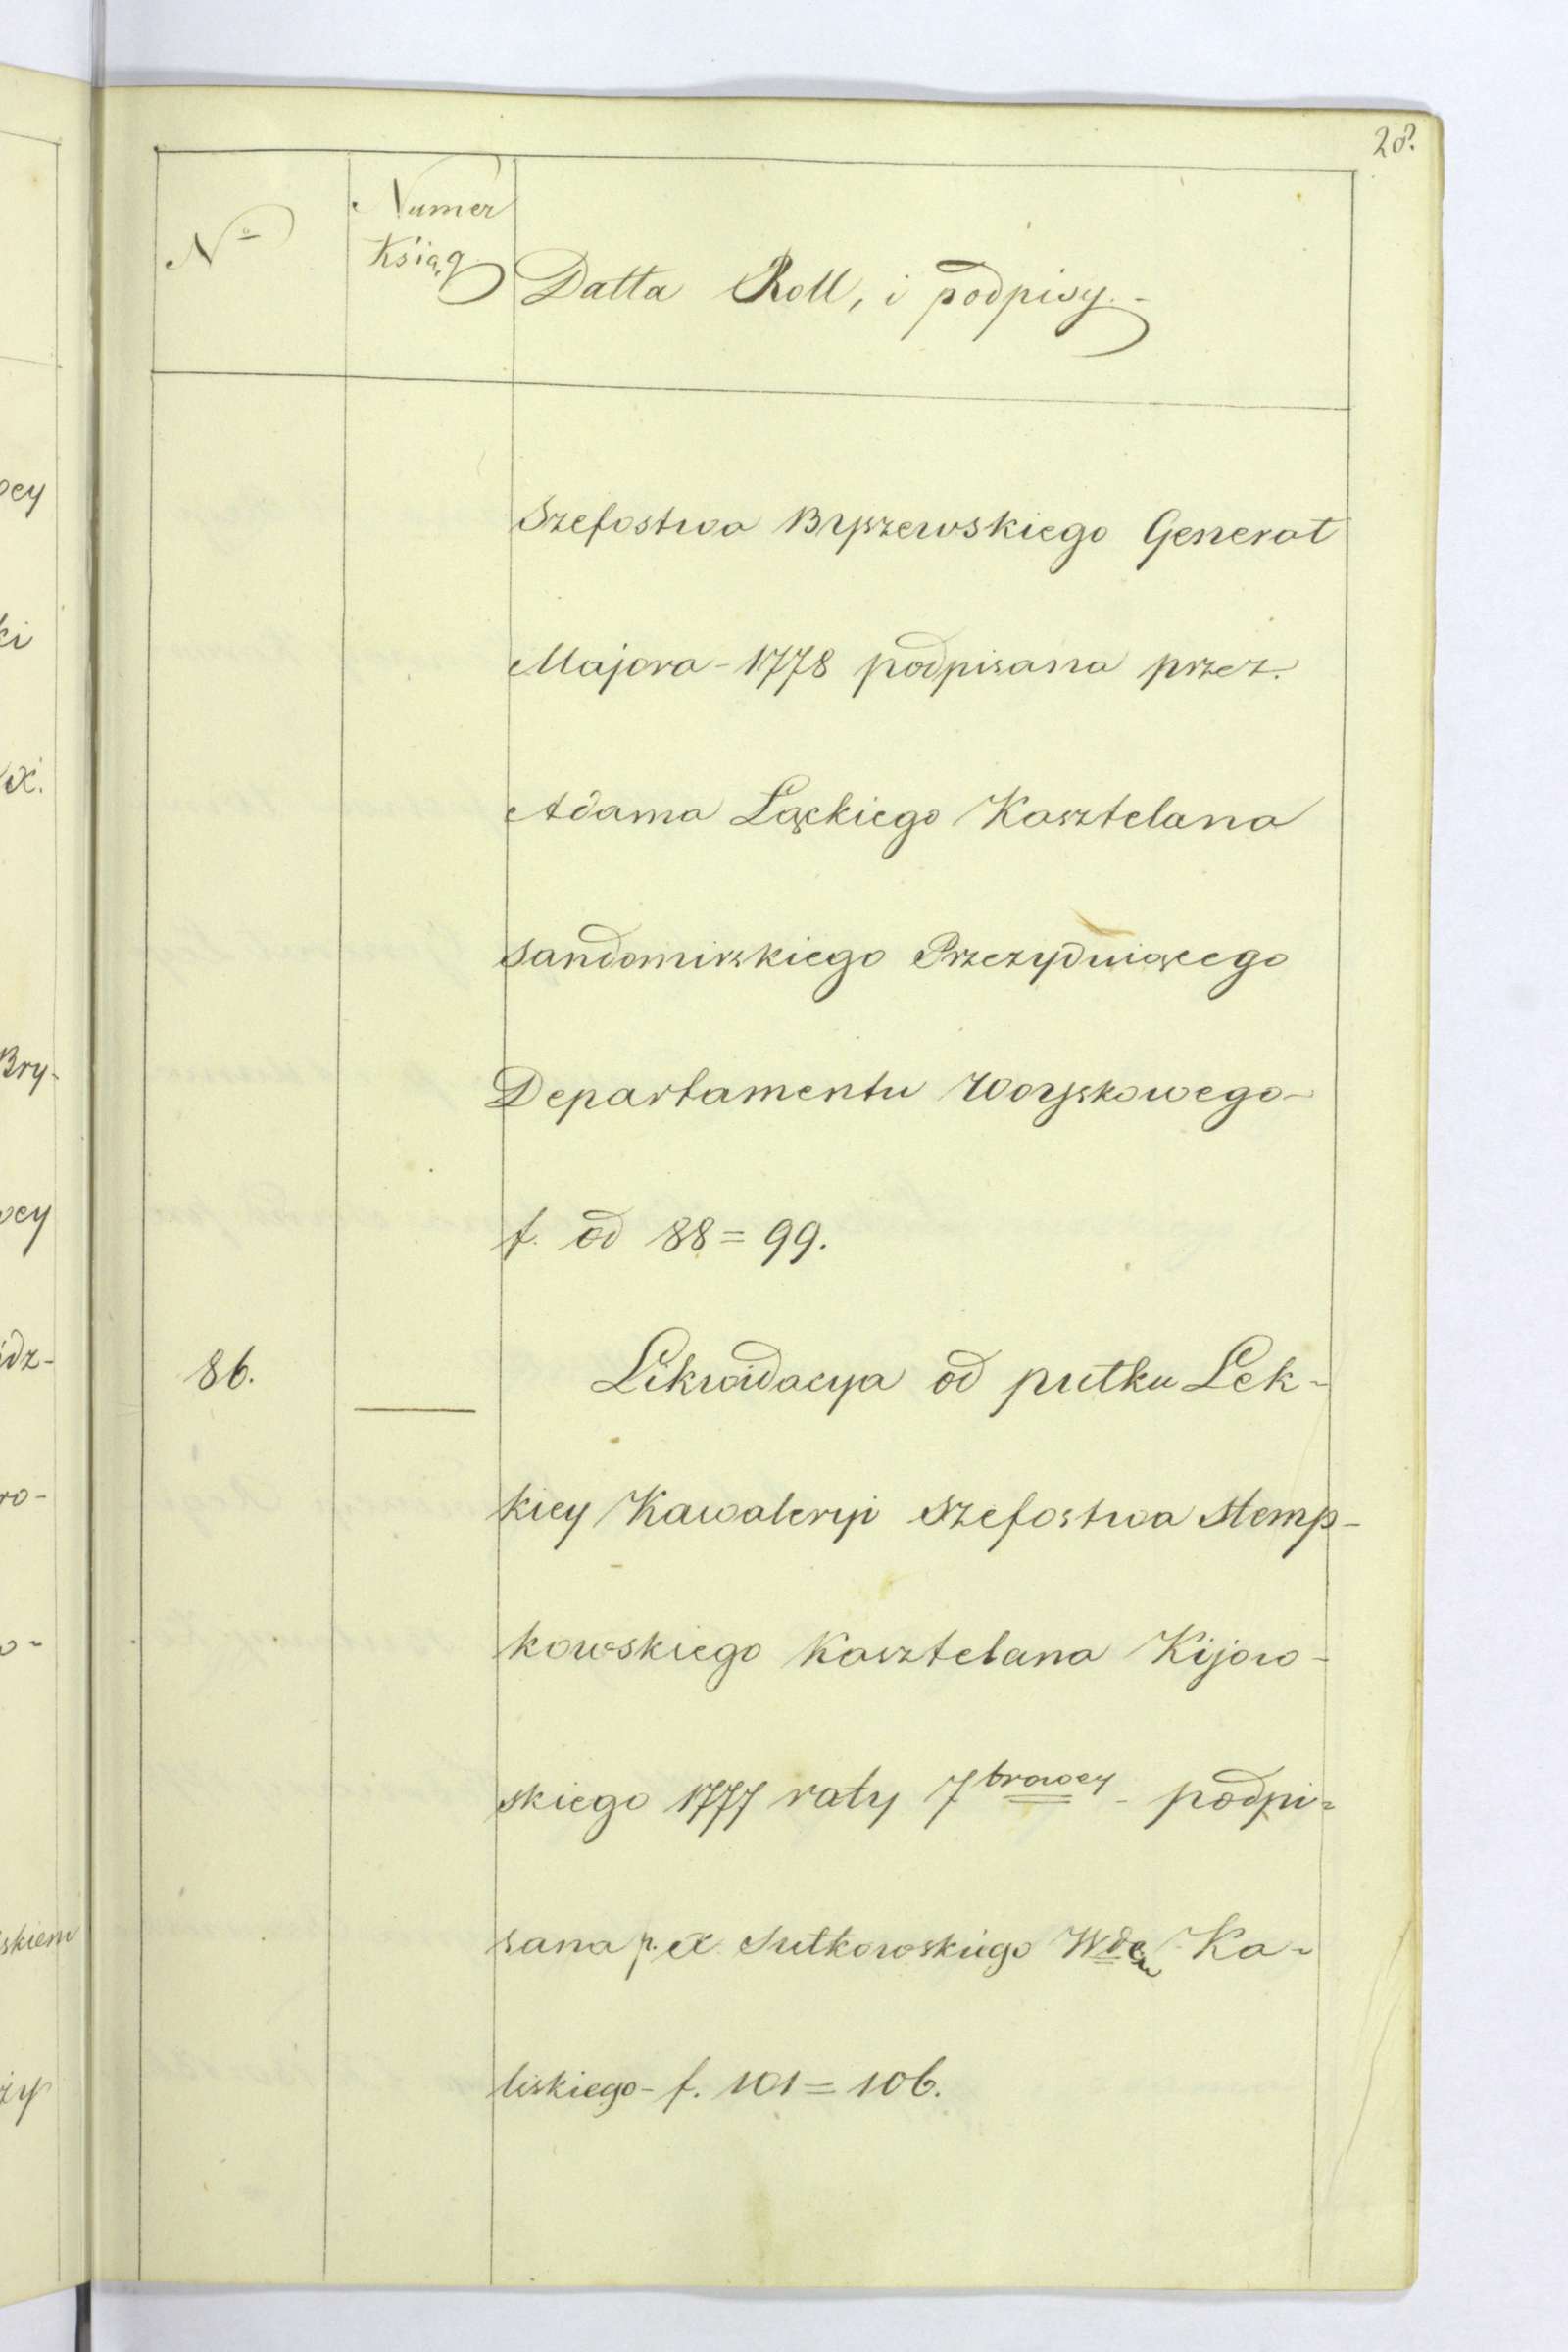 28.
No
Numer
Ksiąg
Datta Roll, i podpisy. -
Szefostwa Byszewskiego Generał
Majora - 1778 podpisana przez
Adama Łąckiego Kasztelana
Sandomirskiego Prezyduiącego
Departamentu Woyskowego -
f. od 88 = 99.
86.
Likwidacya od pułku Lek-
kiey Kawaleryi Szefostwa Stemp-
kowskiego Kasztelana Kijow-
skiego 1777 raty 7browey - podpi=
sana p. X Sułkowskiego Wdę Ka-
liskiego - f. 101 = 106.